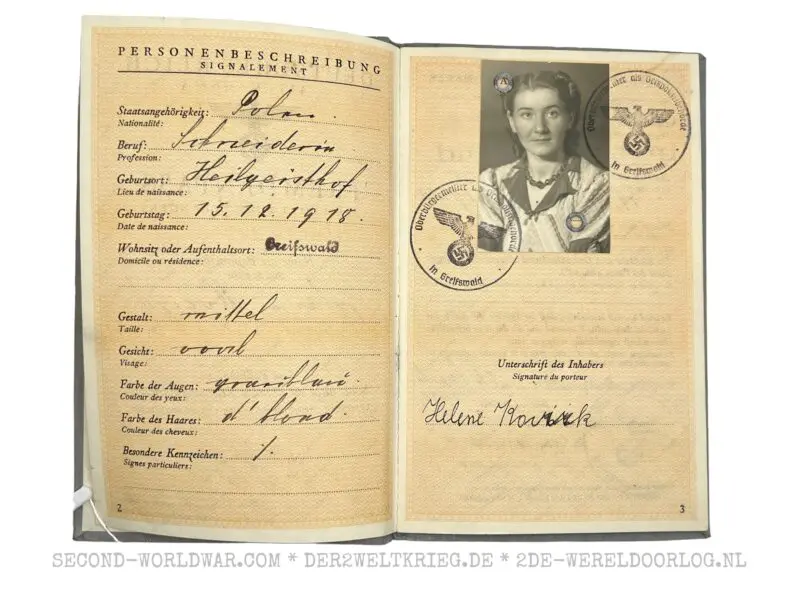 PERSONENBESCHREIBUNG
SIGNALEMENT
Staatsangehörigkeit: Polen
Nationalité:
Beruf: Schneiderin
Profession:
Geburtsort: Heilgeisthof
Lieu de naissance:
Geburtstag: 15.12.1918.
Date de naissance:
Wohnsitz oder Aufenthaltsort: Greifswald
Domicile ou résidence:
Gestalt: mittel
Taille:
Gesicht: oval
Visage:
Farbe der Augen: graublau
Couleur des yeux:
Farbe des Haares: d'blond
Couleur des cheveux:
Besondere Kennzeichen: /.
Signes particuliers:
2
Oberbürgermeister als Ortspolizeibehörde
in Greifswald
Oberbürgermeister als Ortspolizeibehörde
in Greifswald
Unterschrift des Inhabers
Signature du porteur
Helene
3
SECOND-WORLDWAR.COM * DER2WELTKRIEG.DE * 2DE-WERELDOORLOG.NL